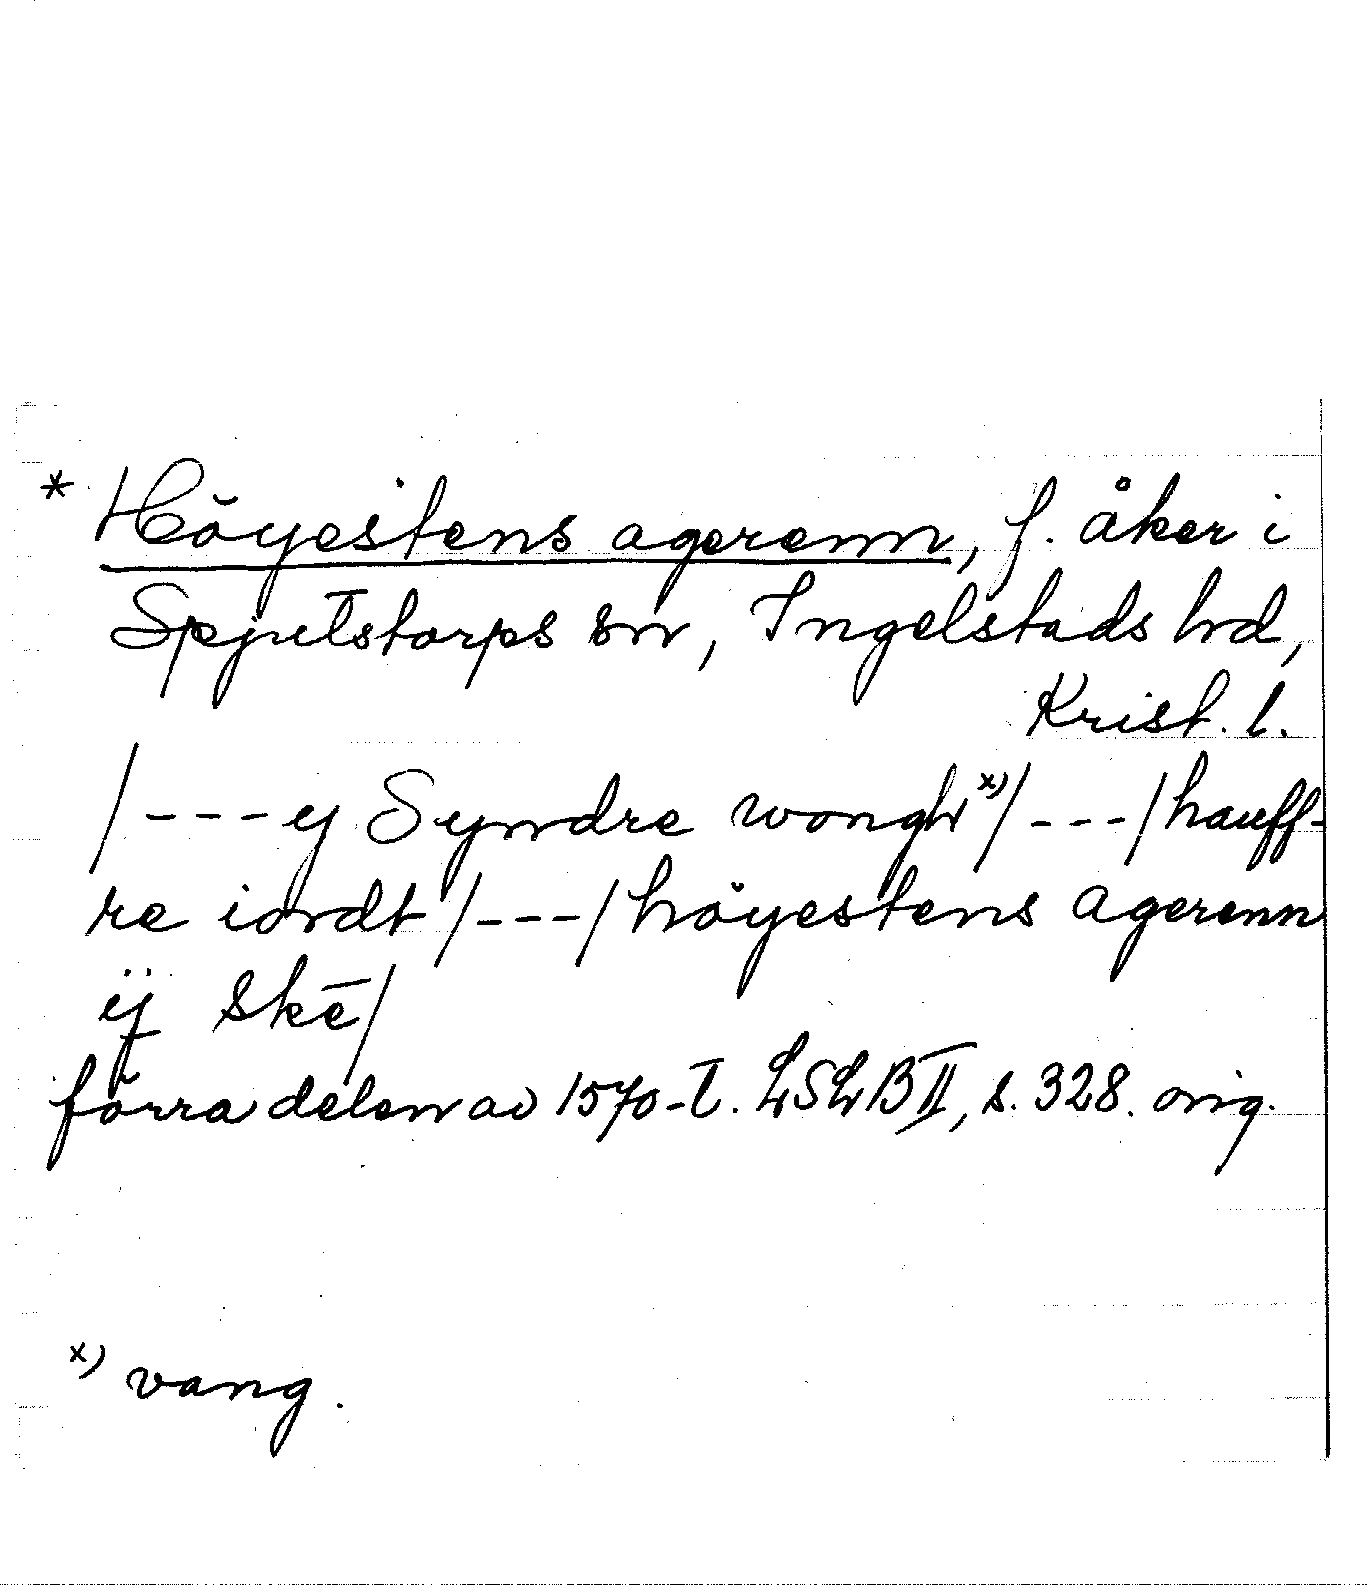 * Höyestens agerenn, f. åker i
Spjutstorps sn, Ingelstads hd,
Krist. l.
/---ey Syndre wongh x)/---/hauff-
re iordt/---/höyestens agerenn
ij skē/
förra delen av 1570-t. LSLB II, s. 328. orig.
x) vang.